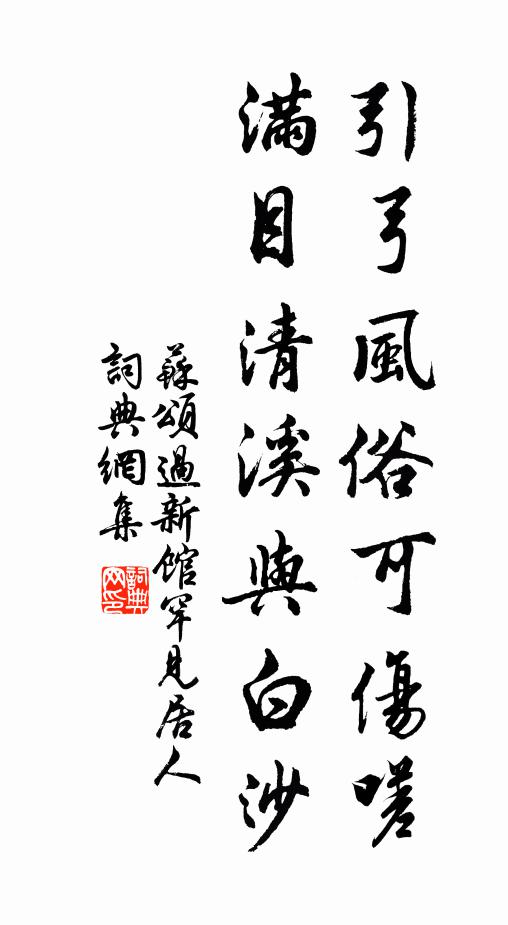 引弓風俗可傷嗟
滿目清溪與白沙
蘇頌過新館罕見居人
詞典網集
詞典网印